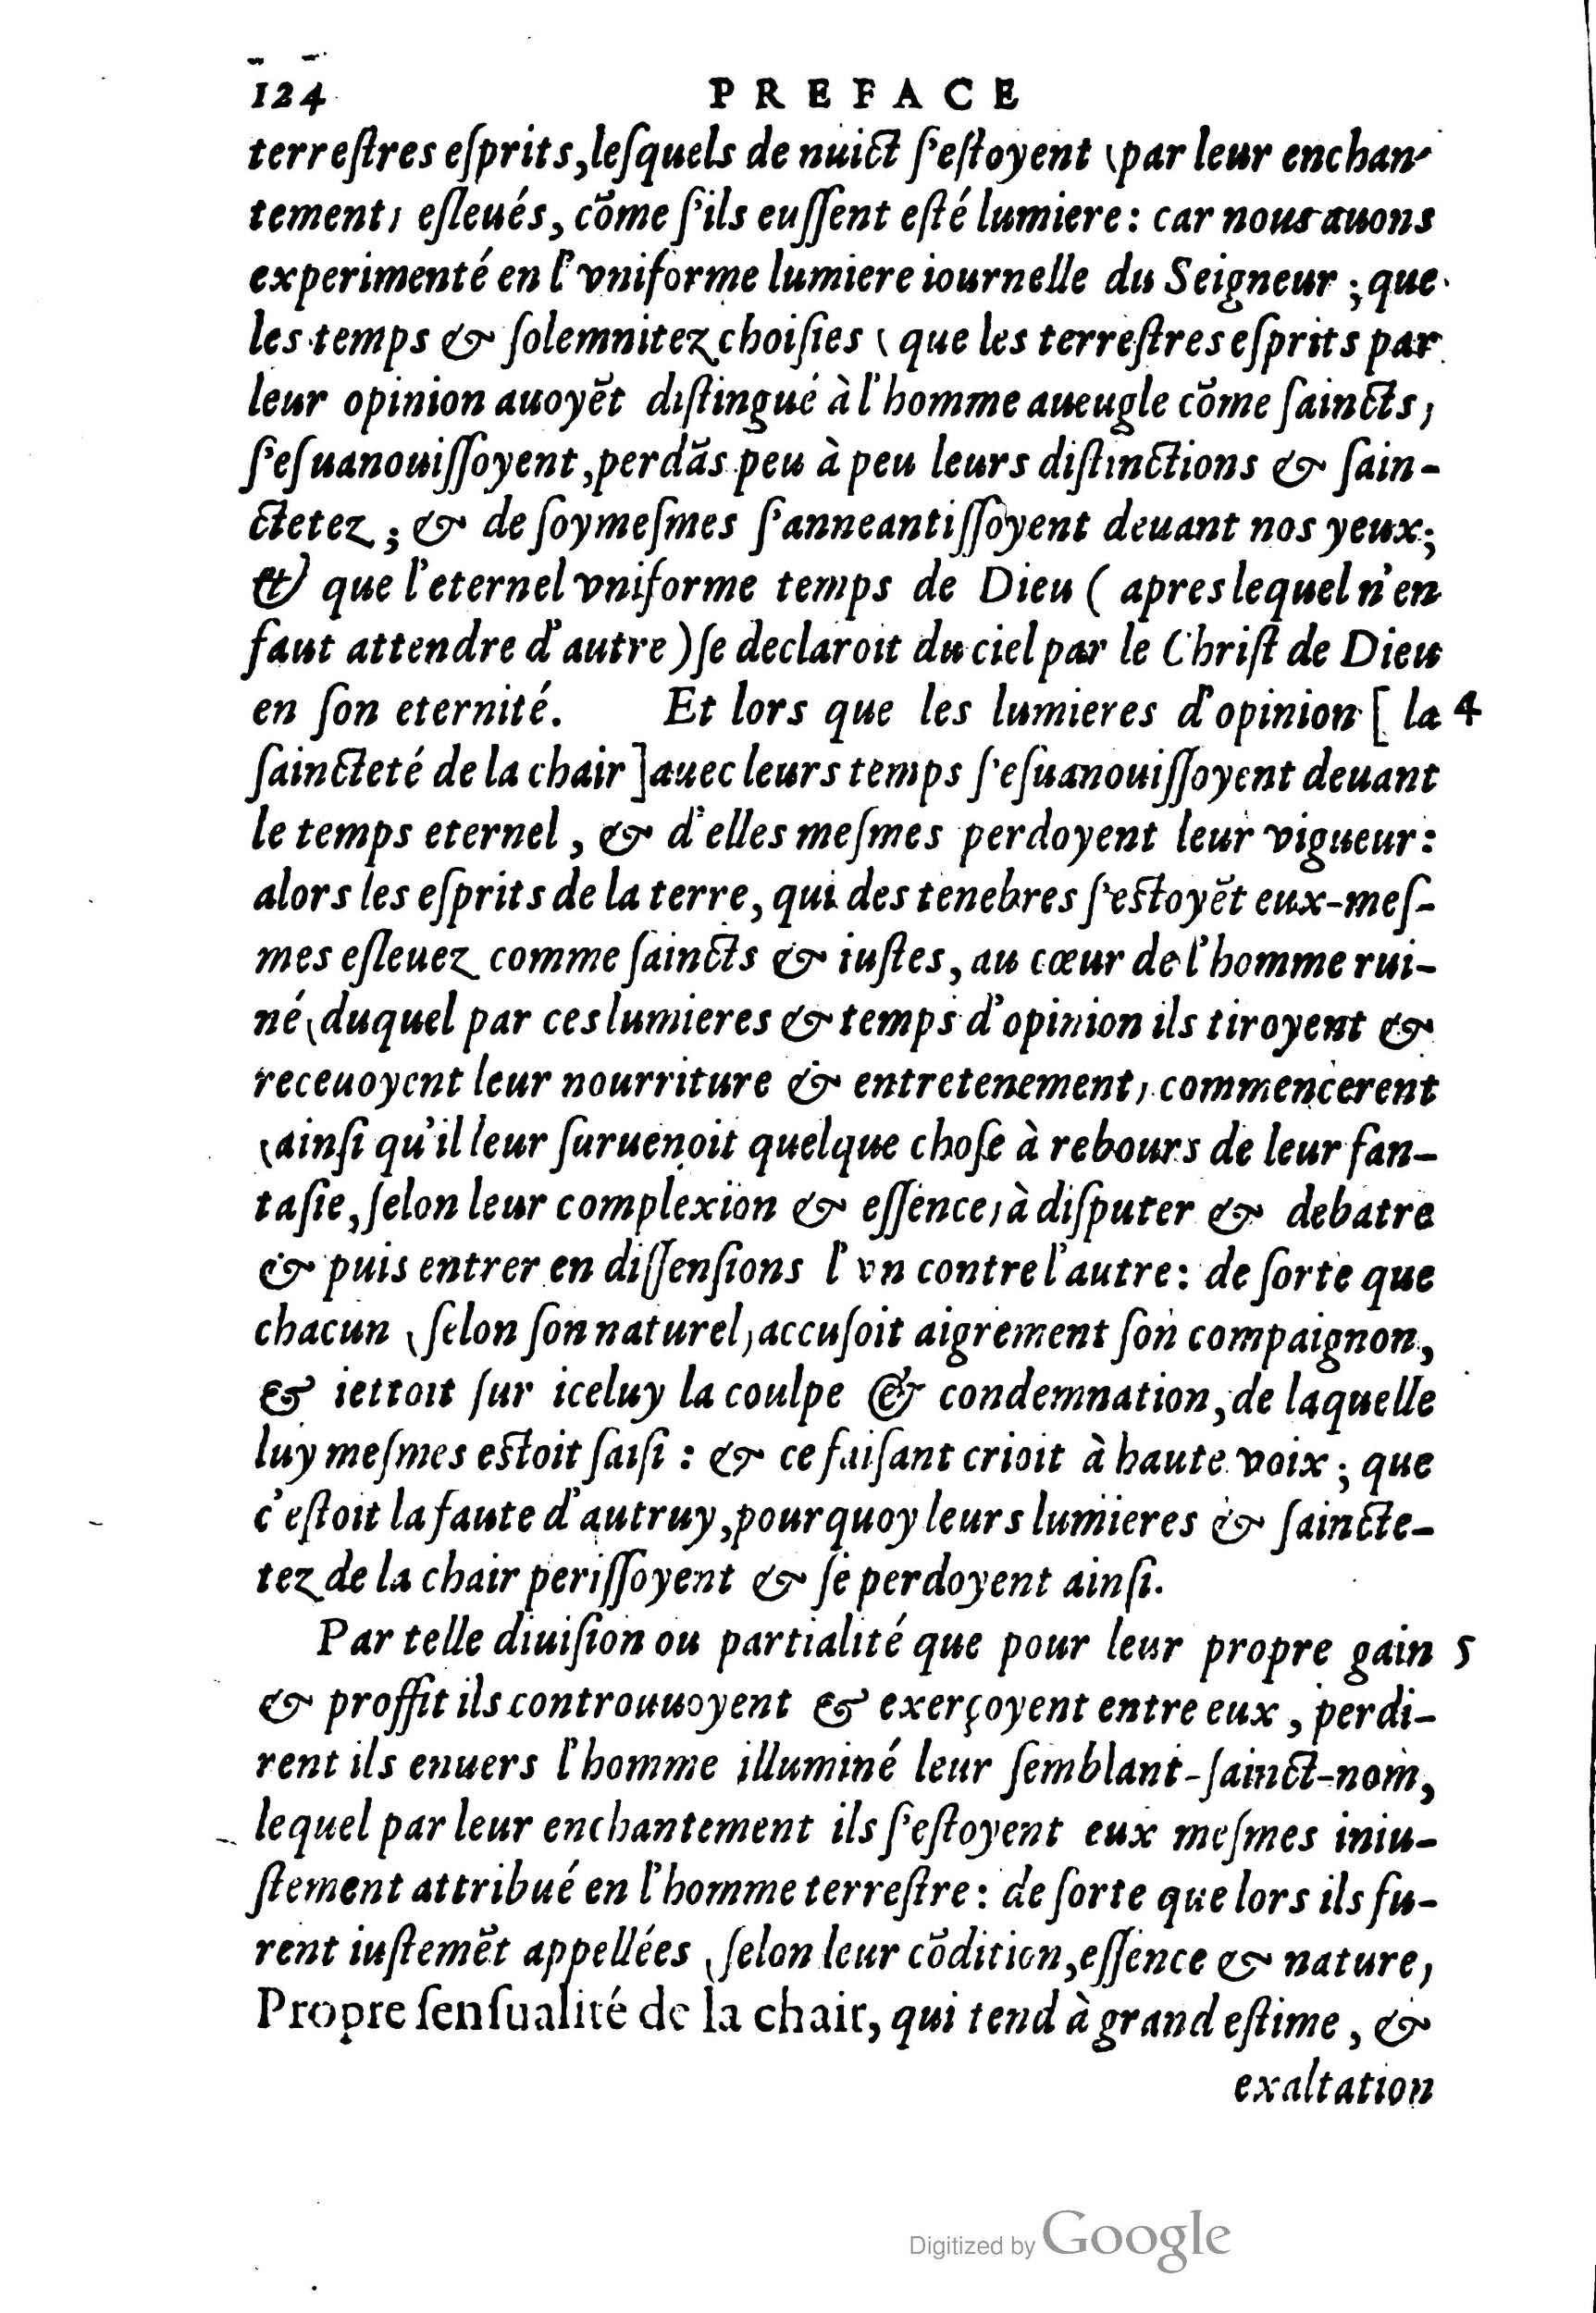 124 PREFACE
terreſtres eſprits, leſquels de nuict ſ'eſtoyent (par leur enchan-
tement) eſleués, cõme ſ'ils euſſent eſté lumiere: car nous auons
experimenté en l'vniforme lumiere iournelle du Seigneur; que
les temps & ſolemnitez choiſies (que les terreſtres eſprits par
leur opinion auoyẽt diſtingué à l'homme aueugle cõme ſaincts)
ſ'eſuanouiſſoyent, perdãs peu à peu leurs diſtinctions & ſain-
ctetez; & de ſoymeſmes ſ'anneantiſſoyent deuant nos yeux;
& que l'eternel vniforme temps de Dieu ( apres lequel n'en
faut attendre d'autre) ſe declaroit du ciel par le Chriſt de Dieu
en ſon eternité. Et lors que les lumieres d'opinion [ la 4
ſaincteté de la chair ] auec leurs temps ſ'eſuanouiſſoyent deuant
le temps eternel, & d'elles meſmes perdoyent leur vigueur:
alors les eſprits de la terre, qui des tenebres ſ'eſtoyẽt eux-meſ-
mes eſleuez comme ſaincts & iuſtes, au cœur de l'homme rui-
né (duquel par ces lumieres & temps d'opinion ils tiroyent &
receuoyent leur nourriture & entretenement) commencerent
(ainſi qu'il leur ſuruenoit quelque choſe à rebours de leur fan-
taſie, ſelon leur complexion & eſſence) à diſputer & debatre
& puis entrer en diſſenſions l'vn contre l'autre: de ſorte que
chacun (ſelon ſon naturel) accuſoit aigrement ſon compaignon,
& iettoit ſur iceluy la coulpe & condemnation, de laquelle
luy meſmes eſtoit ſaiſi: & ce faiſant crioit à haute voix; que
c'eſtoit la faute d'autruy, pourquoy leurs lumieres & ſaincte-
tez de la chair periſſoyent & ſe perdoyent ainſi.
Par telle diuiſion ou partialité que pour leur propre gain 5
& proffit ils controuuoyent & exerçoyent entre eux, perdi-
rent ils enuers l'homme illuminé leur ſemblant-ſainct-nom,
lequel par leur enchantement ils ſ'eſtoyent eux meſmes iniu-
ſtement attribué en l'homme terreſtre: de ſorte que lors ils fu-
rent iuſtemẽt appellées (ſelon leur cõdition, eſſence & nature)
Propre ſenſualité de la chair, qui tend à grand eſtime, &
exaltation
Digitized by Google